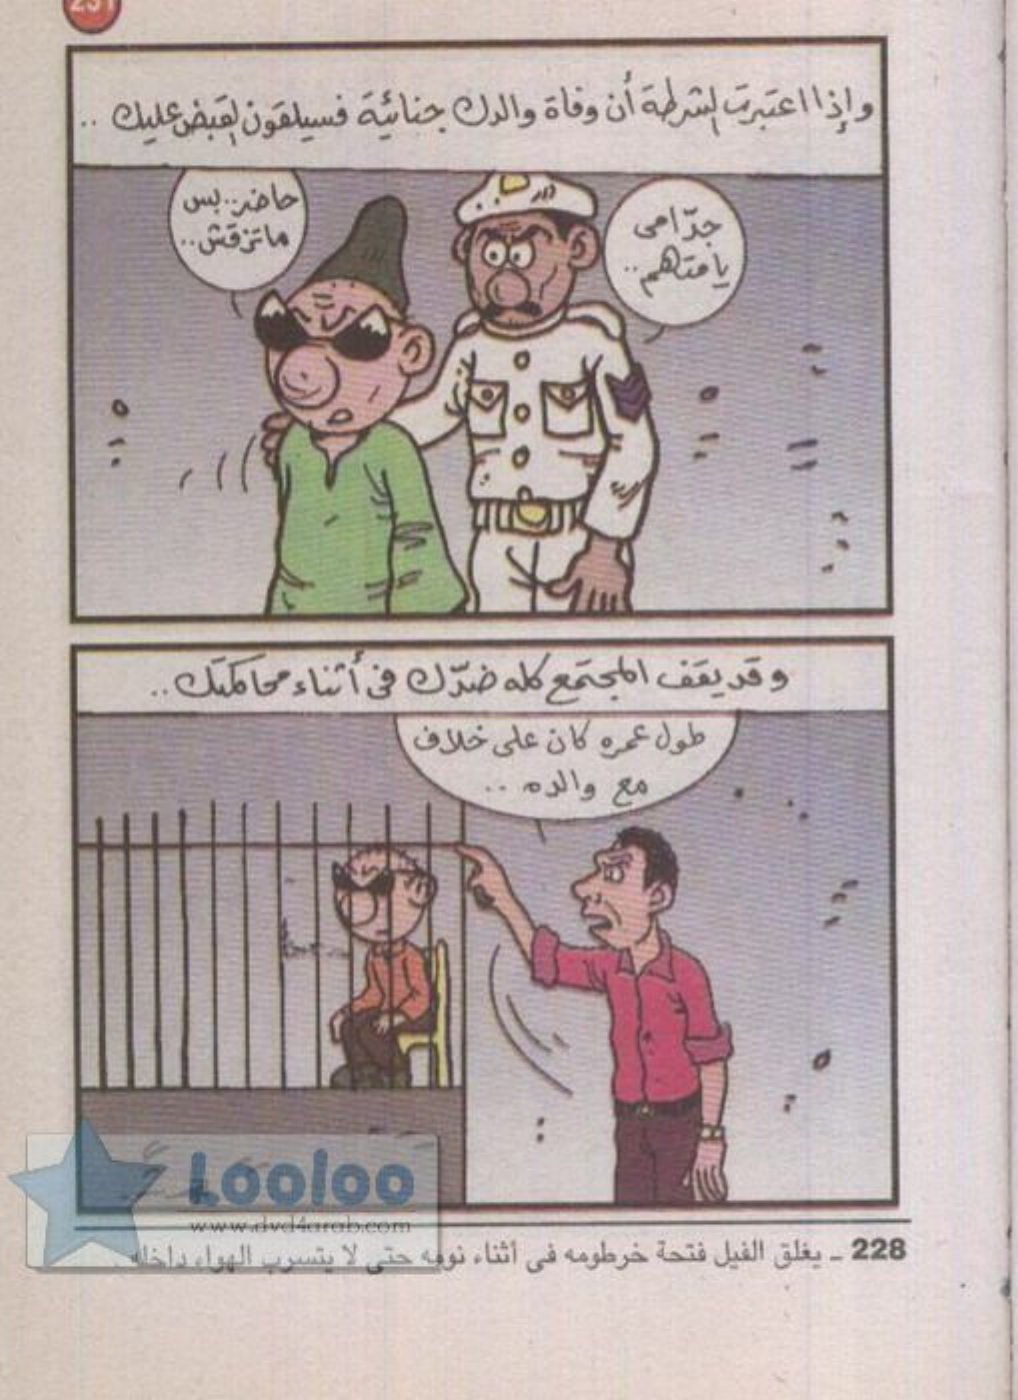 231
وإذا اعتبرت الشرطة أن وفاة والدك جنائية فسيلقون القبض عليك ..
جدّامى
يا متهم..
حاضر..بس
ماتزقش..
وقد يقف المجتمع كله ضدّك فى أثناء محاكمتك..
طول عمره كان على خلاف
مع والده ..
Looloo
www.dvd4arab.com
228 ـ يغلق الفيل فتحة خرطومه فى أثناء نومه حتى لا يتسرب الهواء داخله .